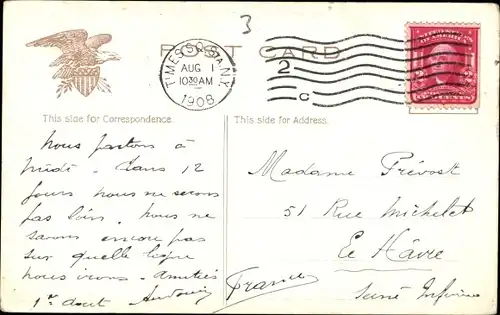 3
POST CARD
TIMES SQ. STA. N.Y.
AUG 1
10 30 AM
1908
2
C
This side for Correspondence.
This side for Address.
nous partons à
midi. Dans 12
jours nous ne serons
pas loin. Nous ne
savons encore pas
sur quelle ligne
nous irons. Amitiés
1er août
Madame Prévost
51 Rue Michelet
Le Hâvre
Seine Inférieure
France